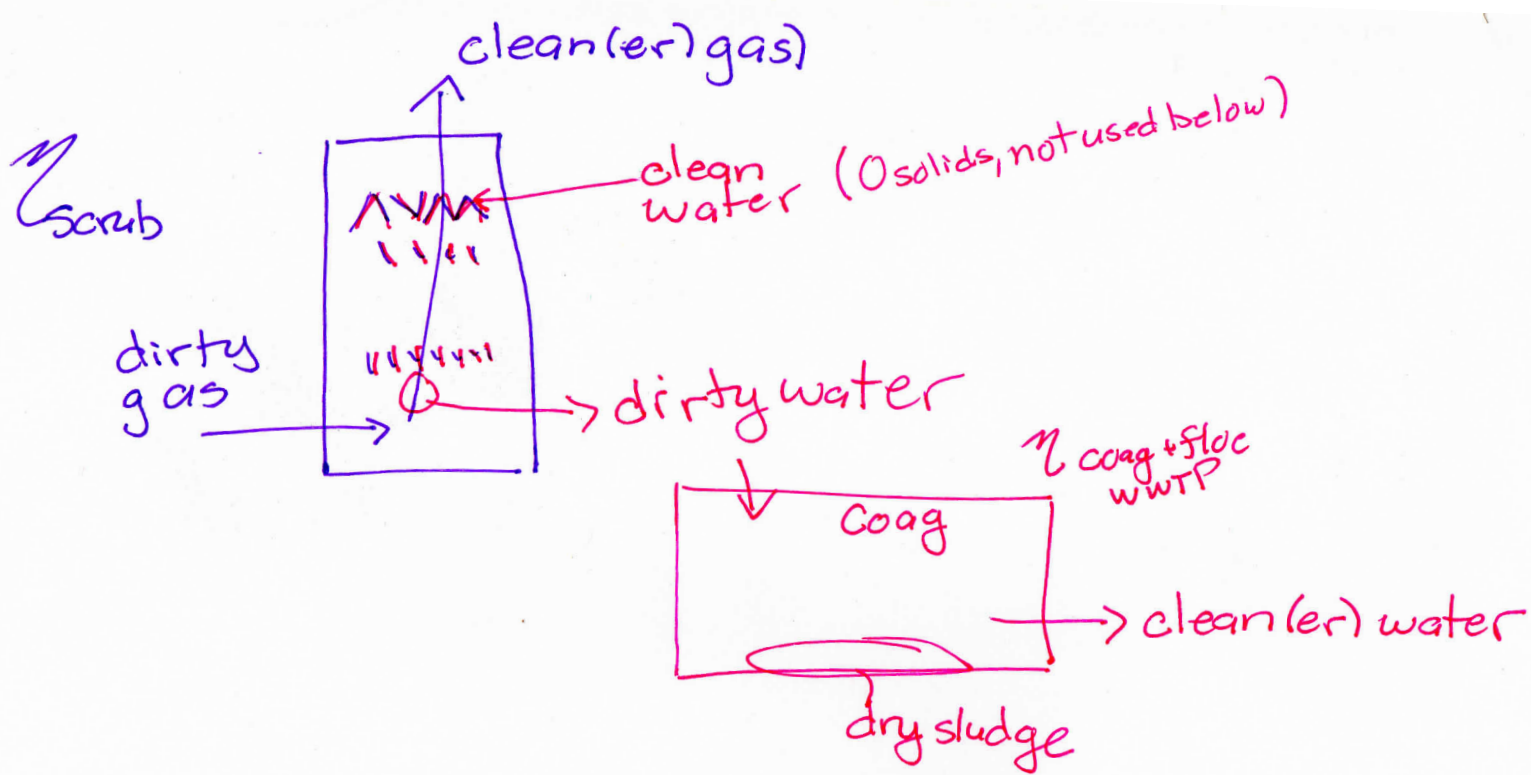 clean(er) gas)
η scrub
clean
water (0 solids, not used below)
dirty
gas
dirty water
η coag + floc
WWTP
Coag
clean(er) water
dry sludge